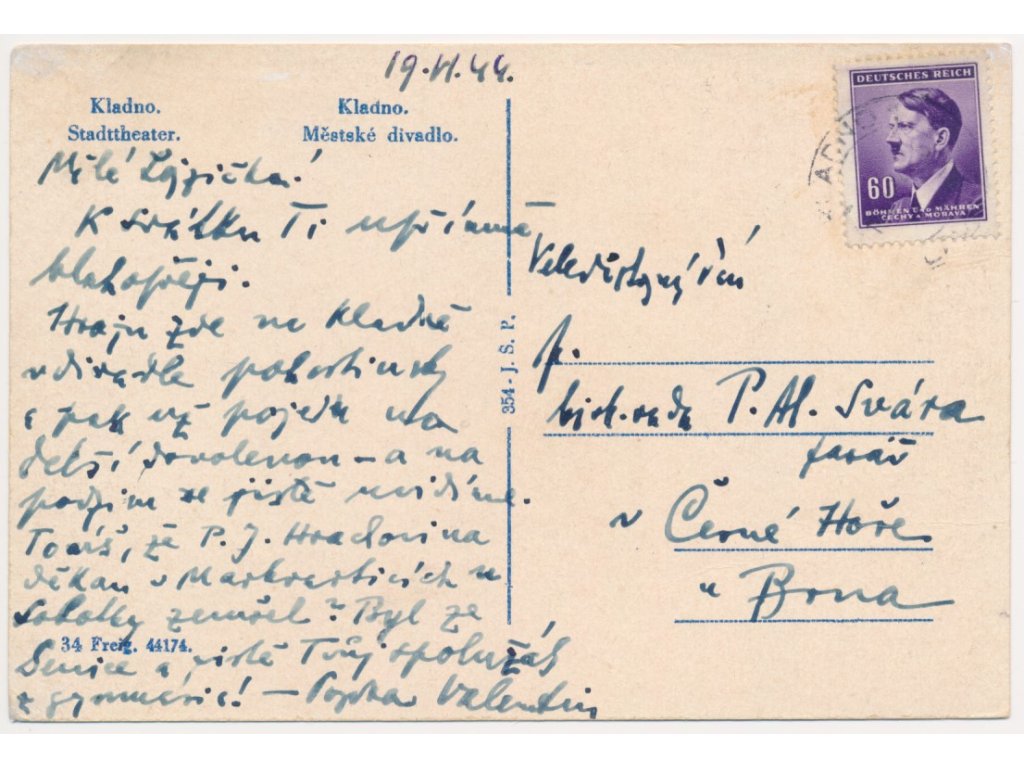 19.VI.44.
Kladno.
Stadttheater.
Kladno.
Městské divadlo.
DEUTSCHES REICH
60
BÖHMEN UND MÄHREN
ČECHY A MORAVA
Milá
K svátku Ti upřímně
blahopřeji.
Hraju zde na Kladně
v divadle pohostinsky
a pak už pojedu na
delší dovolenou – a na
podzim se jistě uvidíme.
Toníš, že P. J.
děkan v Markvarticích u
Sobotky zemřel? Byl ze
34 Freig. 44174.
Senice a jistě Tvůj spolužák
z gymnasia! –
Valentin
354 - J. S. P.
Veledůstojný Pán
p.
P. Al. Svára
farář
v Černé Hoře
u Brna